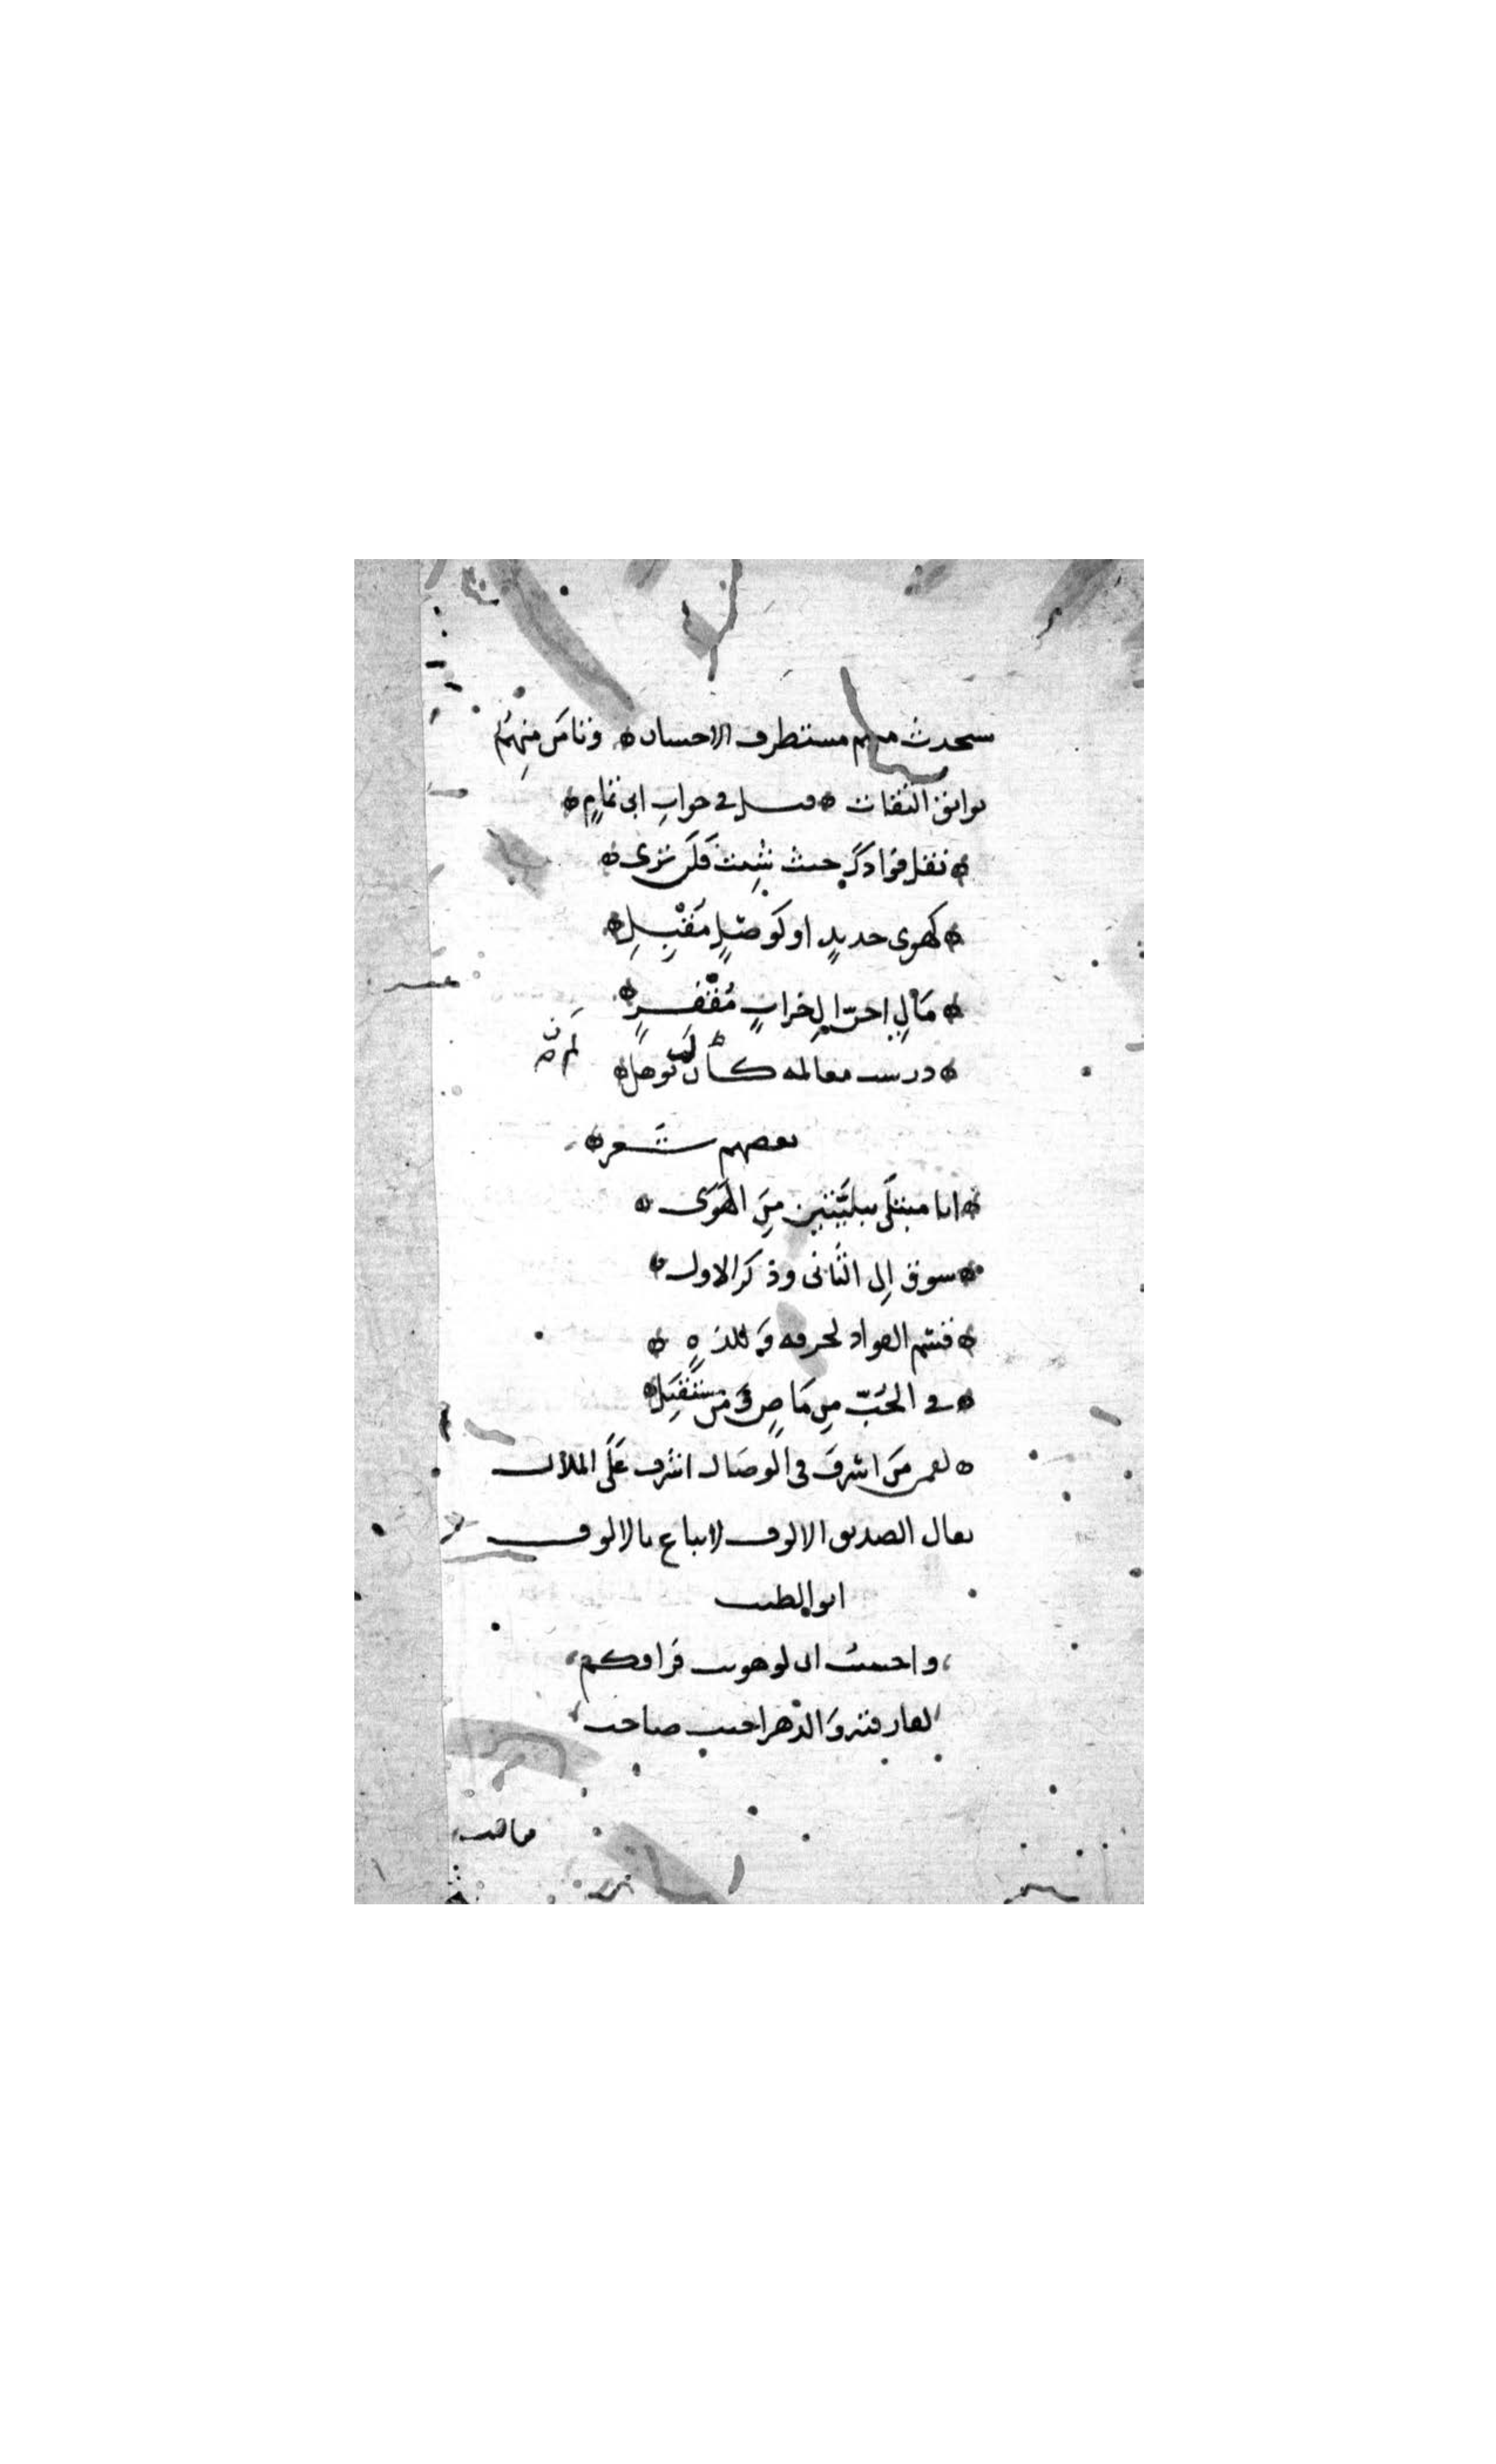 ستحدث منهم مستطرف الاحسان وتامن منهم
بوائق الثقات قيل في جواب ابي تمام
نقل فؤادك حيث شئت فلن ترى
كهوى جديد او كوصل مقبل
مالي احن الى خراب مقفر
درست معالمه كأن لم توهل
بعضهم شعر
انا مبتلى ببليتين من الهوى
شوق الى الثاني وذكر الاول
قسم الفواد لحرمة ولذة
في الحب من ماض ومن مستقبل
لعمر من اشرف في الوصال اشرف على الملال
يقال الصديق الالوف لا يباع بالالوف
ابو الطيب
واحسب اني لو هويت فراقكم
لفارقته والدهر اخبث صاحب